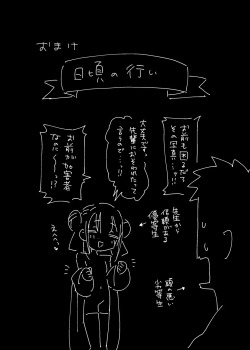 おまけ
日頃の行い
お前も困るだろ
その写真…ッ!!
大丈夫です。
先輩におそわれたって
言うので…ッ!
お前が加害者
なのに〜ッ!?
先生から
信頼がある
優等生
頭の悪い
劣等生
えへへ